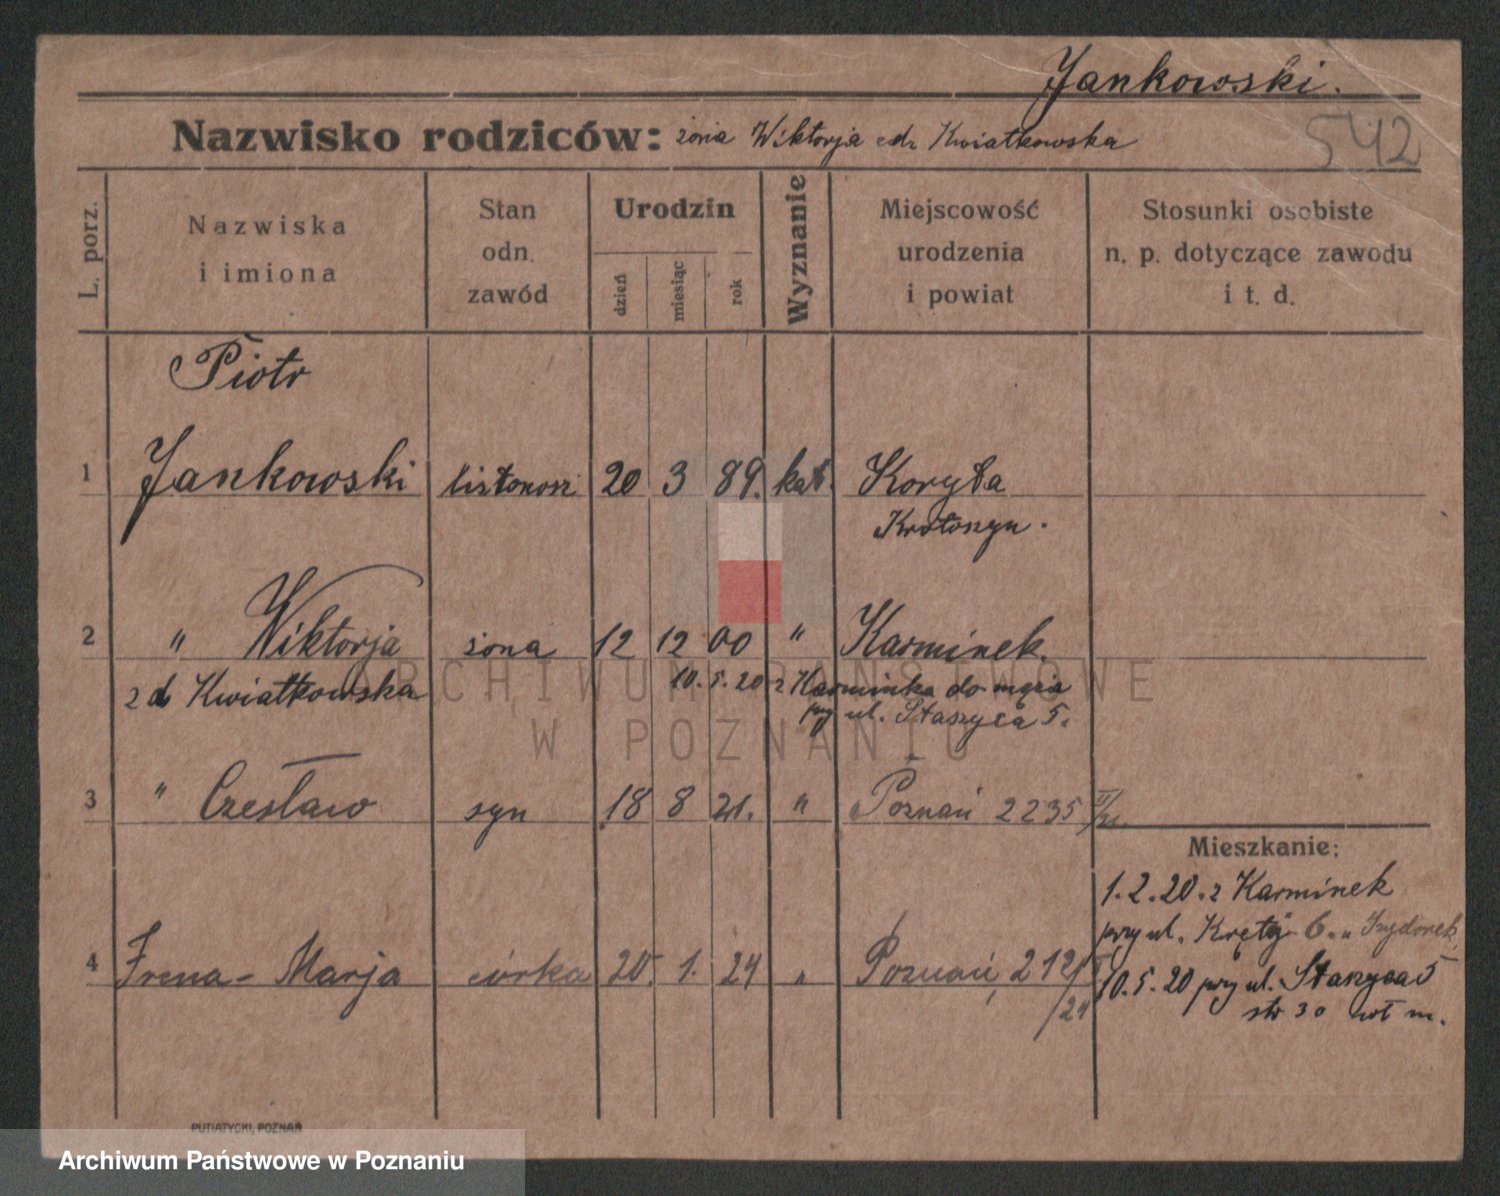 Jankowski.
Nazwisko rodziców: żona Wiktorja zd. Kwiatkowska
542
L. porz.
Nazwiska i imiona
Stan odn. zawód
Urodzin
dzień
miesiąc
rok
Wyznanie
Miejscowość urodzenia i powiat
Stosunki osobiste n. p. dotyczące zawodu i t. d.
Piotr
1 Jankowski listonosz 20 3 89. kat. Koryta
Krotoszyn.
2 " Wiktorja żona 12 12 00 " Karminek.
zd Kwiatkowska 10.5.20 z Karminka do męża
przy ul. Staszyca 5.
3 " Czesław syn 18 8 21. " Poznań 2235 II/21.
Mieszkanie:
1.2.20. z Karminek
przy ul. Kręty 6. u Izydorek
4 Irena-Marja córka 20. 1. 24 " Poznań, 212/
/24
10.5.20 przy ul. Staszyca 5
str 30 wł m.
PUTIATYCKI, POZNAŃ
ARCHIWUM PAŃSTWOWE
W POZNANIU
Archiwum Państwowe w Poznaniu